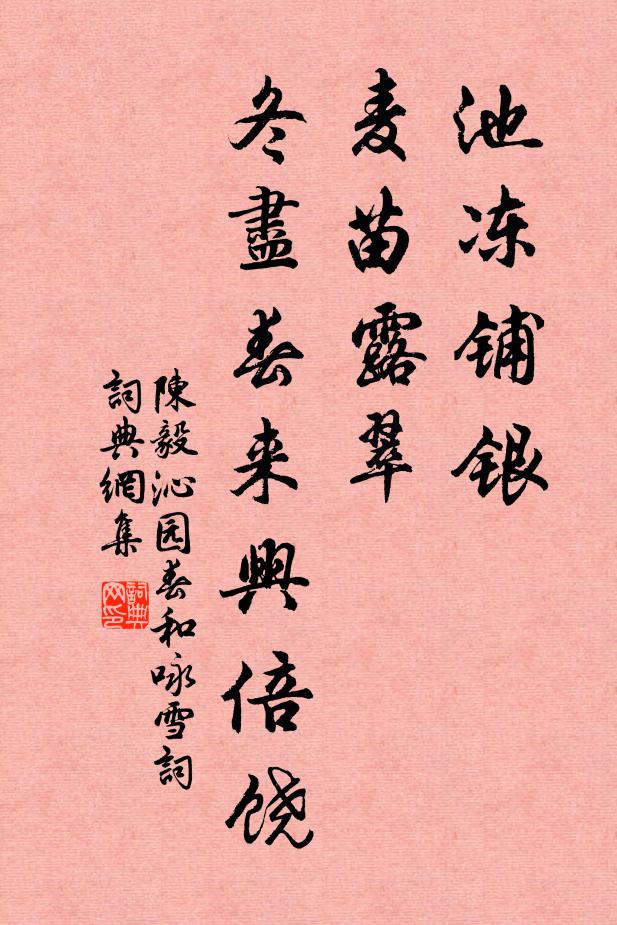 池冻铺银
麦苗露翠
冬盡春来興倍饶
陳毅沁园春和咏雪詞
詞典網集
詞典網印